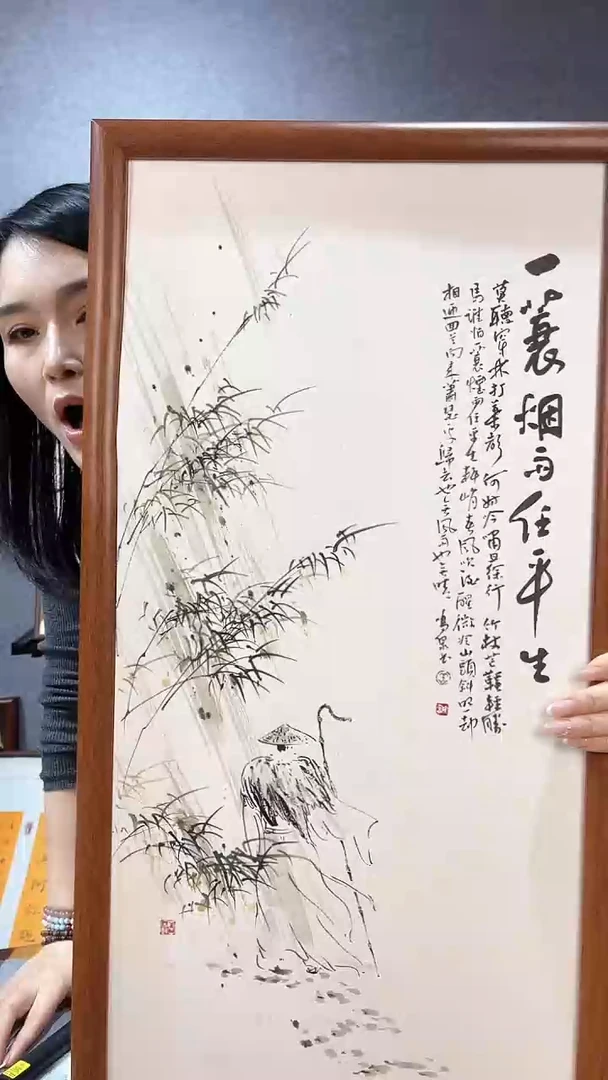 一蓑烟雨任平生
莫聽穿林打葉聲 何妨吟嘯且徐行 竹杖芒鞋輕勝
馬誰怕一蓑煙雨任平生料峭春風吹酒醒微冷山頭斜照却
相迎回首向来蕭瑟處歸去也无風雨也无晴